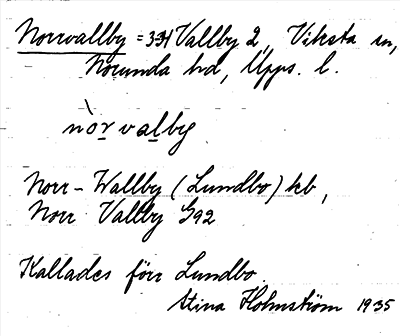 Norrvallby = 334 Vallby 2, Viksta sn,
Norunda hd, Upps. l.
nòrvalby
Norr-Wallby (Lundbo) kb,
Norr Vallby G92
Kallades förr Lundbo.
Stina Holmström 1935